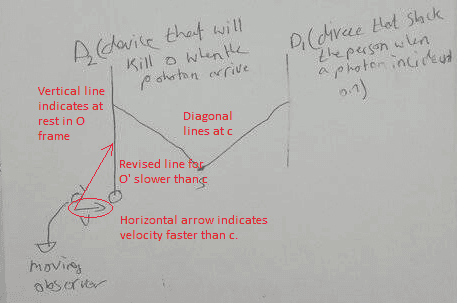 D2(device that will
kill O when the
photon arrive
D1(divece that shock
the person when
a photon incident
on)
Vertical line
indicates at
rest in O
frame
Diagonal
lines at c
Revised line for
O' slower than c
S
O
O'
V
Horizontal arrow indicates
velocity faster than c.
moving
observer